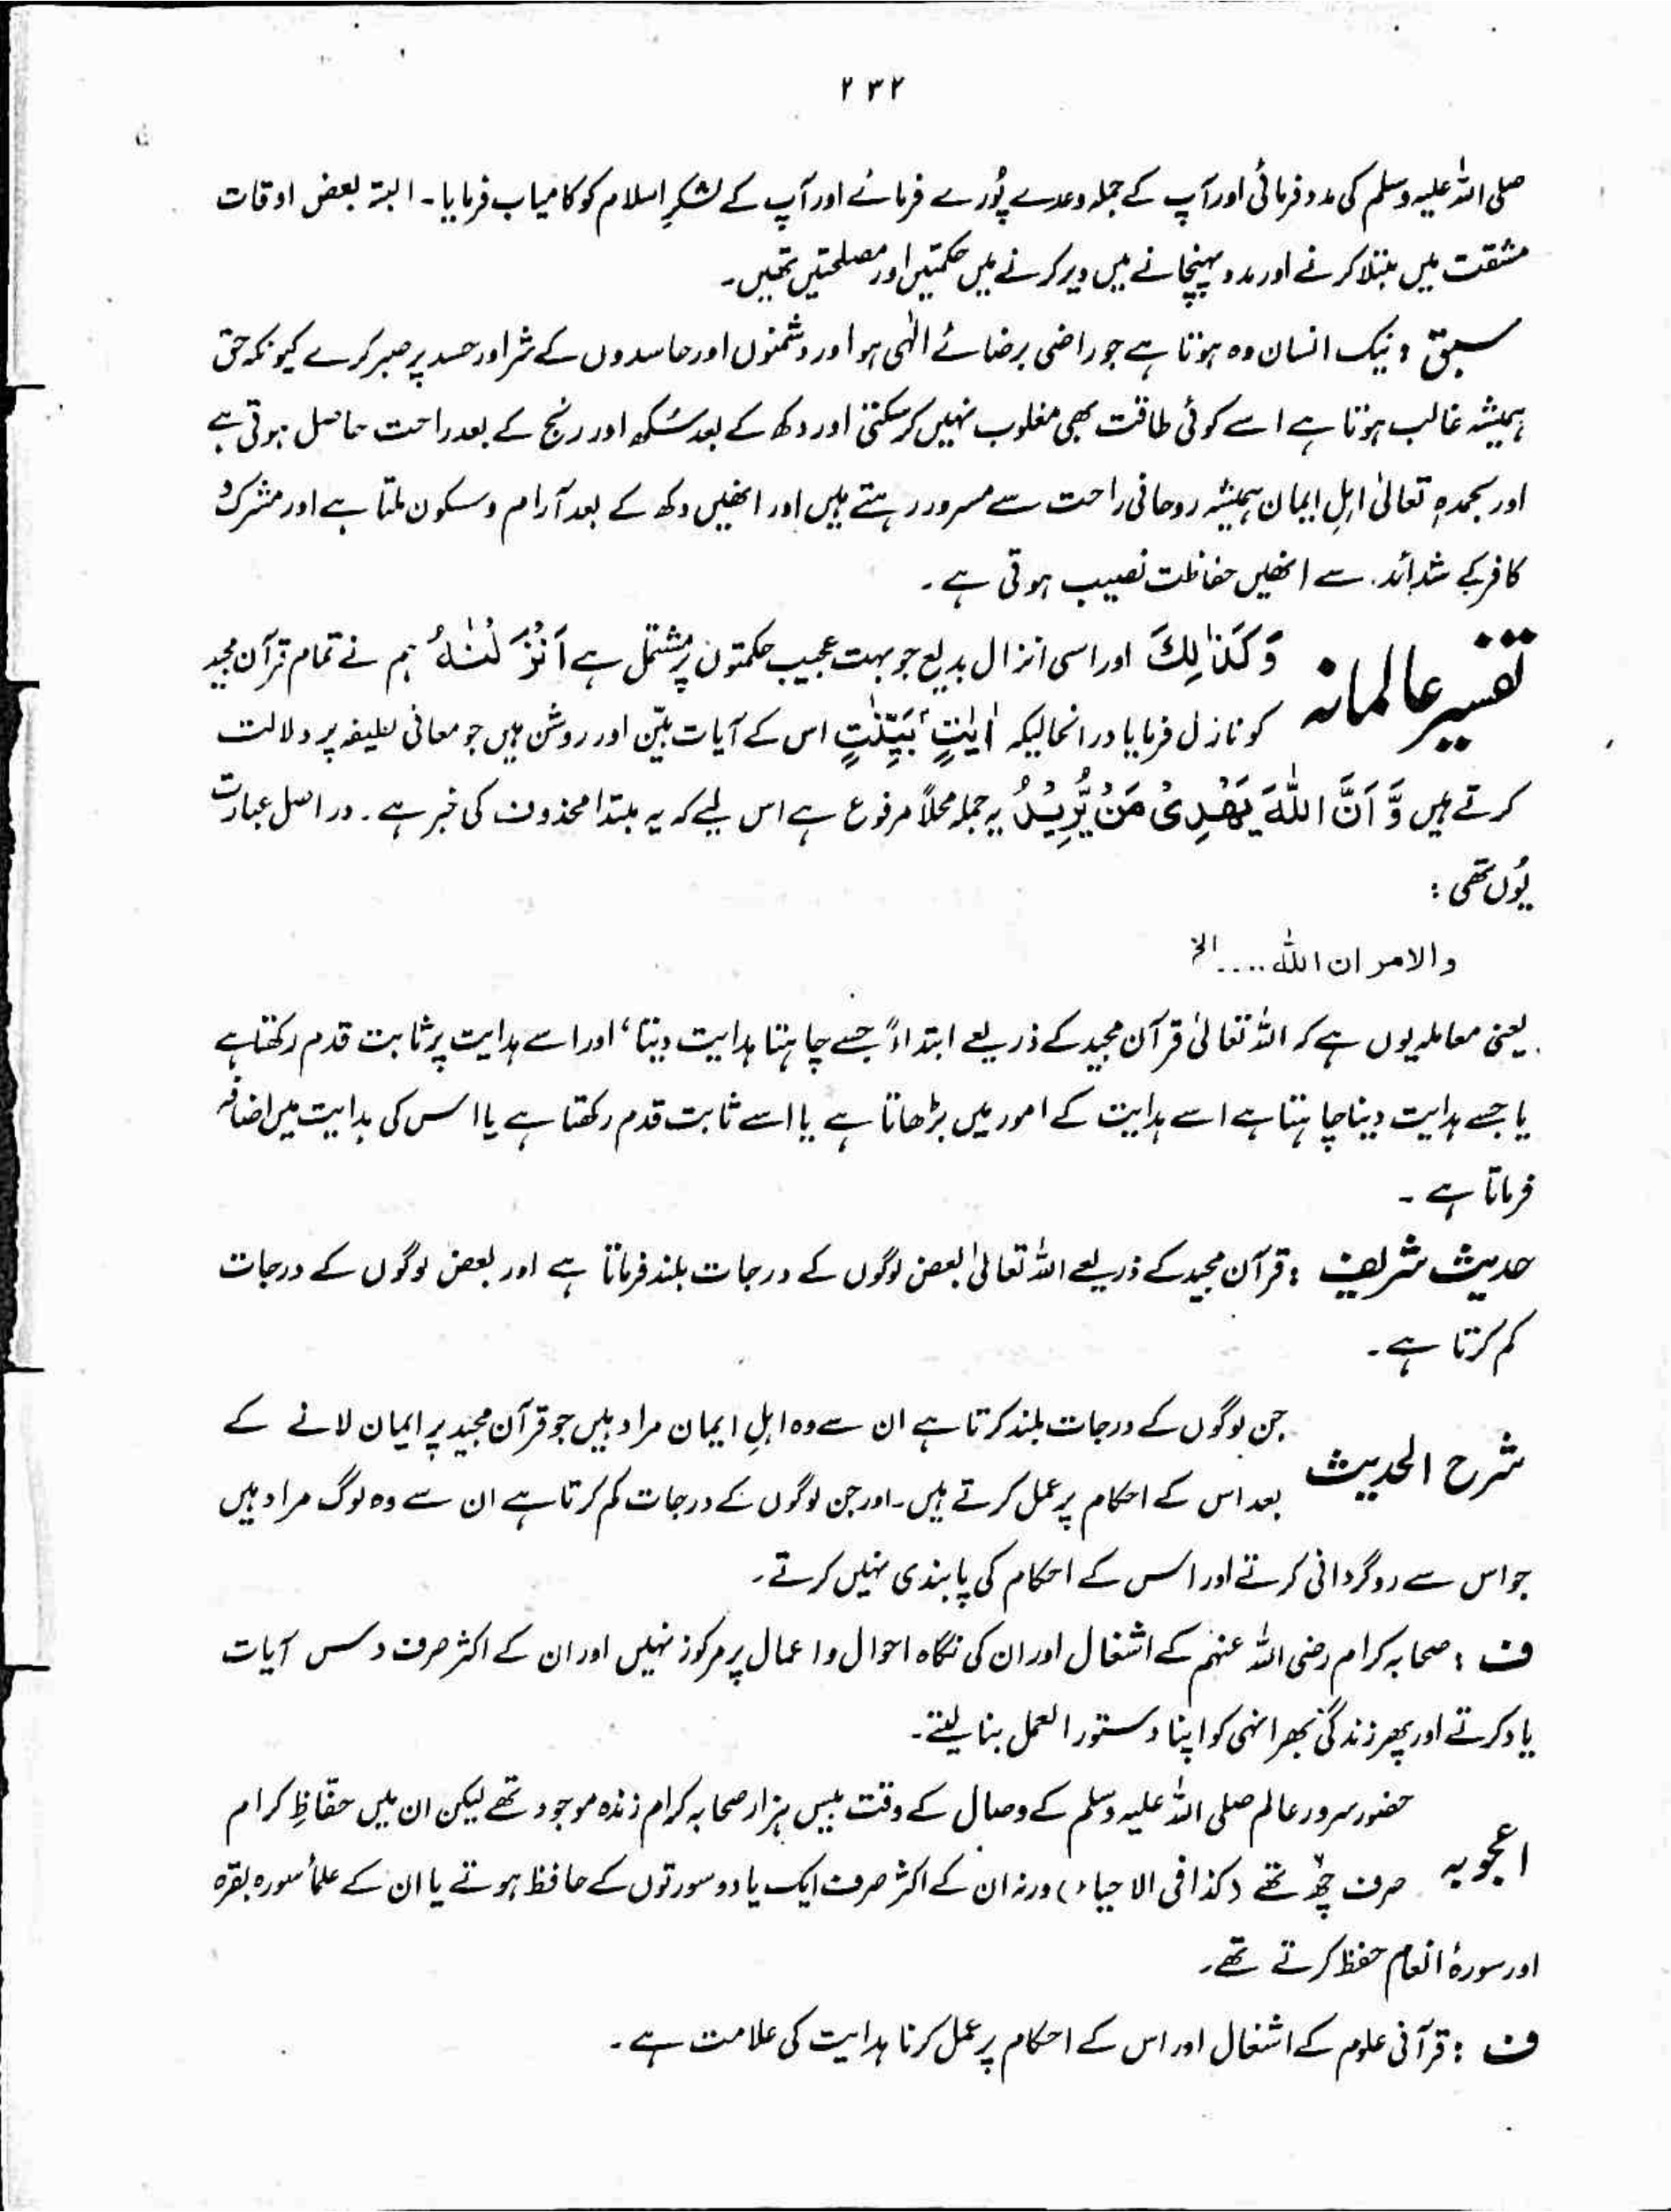 ۲۳۲
صلی اللہ علیہ وسلم کی مدد فرمائی اور آپ کے جملہ وعدے پُورے فرمائے اور آپ کے لشکرِ اسلام کو کامیاب فرمایا۔ البتہ بعض اوقات
مشقت میں مبتلا کرنے اور مدد پہنچانے میں دیر کرنے میں حکمتیں اور مصلحتیں تھیں۔
سبق : نیک انسان وہ ہوتا ہے جو راضی برضائے الٰہی ہو اور دشمنوں اور حاسدوں کے شر اور حسد پر صبر کرے کیونکہ حق
ہمیشہ غالب ہوتا ہے اسے کوئی طاقت بھی مغلوب نہیں کرسکتی اور دکھ کے بعد سُکھ اور رنج کے بعد راحت حاصل ہوتی ہے
اور بحمدہٖ تعالیٰ اہلِ ایمان ہمیشہ روحانی راحت سے مسرور رہتے ہیں اور انھیں دکھ کے بعد آرام و سکون ملتا ہے اور مشرک و
کافر کے شدائد سے انھیں حفاظت نصیب ہوتی ہے۔
تفسیر عالمانہ وَكَذٰلِكَ اور اسی انزال بدیع جو بہت عجیب حکمتوں پر مشتمل ہے اَنْزَلْنٰهُ ہم نے تمام قرآن مجید
کو نازل فرمایا درانحالیکہ اٰیٰتٍۭ بَیِّنٰتٍ اس کے آیات بیّن اور روشن ہیں جو معانی لطیفہ پر دلالت
کرتے ہیں وَّ اَنَّ اللّٰهَ یَهْدِیْ مَنْ یُّرِیْدُ یہ جملہ محلاً مرفوع ہے اس لیے کہ یہ مبتدا محذوف کی خبر ہے۔ دراصل عبارت
یُوں تھی :
والامر ان اللّٰه .... الخ
یعنی معاملہ یوں ہے کہ اللہ تعالیٰ قرآن مجید کے ذریعے ابتداءً جسے چاہتا ہدایت دیتا، اور اسے ہدایت پر ثابت قدم رکھتا ہے
یا جسے ہدایت دینا چاہتا ہے اسے ہدایت کے امور میں بڑھاتا ہے یا اسے ثابت قدم رکھتا ہے یا اس کی ہدایت میں اضافہ
فرماتا ہے۔
حدیث شریف : قرآن مجید کے ذریعے اللہ تعالیٰ بعض لوگوں کے درجات بلند فرماتا ہے اور بعض لوگوں کے درجات
کم کرتا ہے۔
شرح الحدیث جن لوگوں کے درجات بلند کرتا ہے ان سے وہ اہلِ ایمان مراد ہیں جو قرآن مجید پر ایمان لانے کے
بعد اس کے احکام پر عمل کرتے ہیں۔ اور جن لوگوں کے درجات کم کرتا ہے ان سے وہ لوگ مراد ہیں
جو اس سے روگردانی کرتے اور اس کے احکام کی پابندی نہیں کرتے۔
ف : صحابہ کرام رضی اللہ عنہم کے اشغال اور ان کی نگاہ احوال و اعمال پر مرکوز نہیں اور ان کے اکثر صرف دس آیات
یاد کرتے اور پھر زندگی بھر انہی کو اپنا دستور العمل بنا لیتے۔
اعجوبہ حضور سرور عالم صلی اللہ علیہ وسلم کے وصال کے وقت بیس ہزار صحابہ کرام زندہ موجود تھے لیکن ان میں حفّاظِ کرام
صرف چھ تھے (کذا فی الاحیاء) ورنہ ان کے اکثر صرف ایک یا دو سورتوں کے حافظ ہوتے یا ان کے علماء سورہ بقرہ
اور سورۂ انعام حفظ کرتے تھے۔
ف : قرآنی علوم کے اشغال اور اس کے احکام پر عمل کرنا ہدایت کی علامت ہے۔